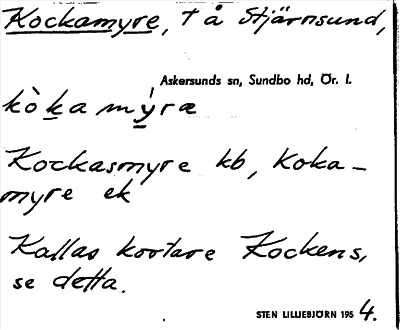 Kockamyre, t å Stjärnsund,
Askersunds sn, Sundbo hd, Ör. l.
kò̱ka mý̱ræ
Kockasmyre kb, Koka-
myre ek
Kallas kortare Kockens,
se detta.
STEN LILLIEBJÖRN 195 4.